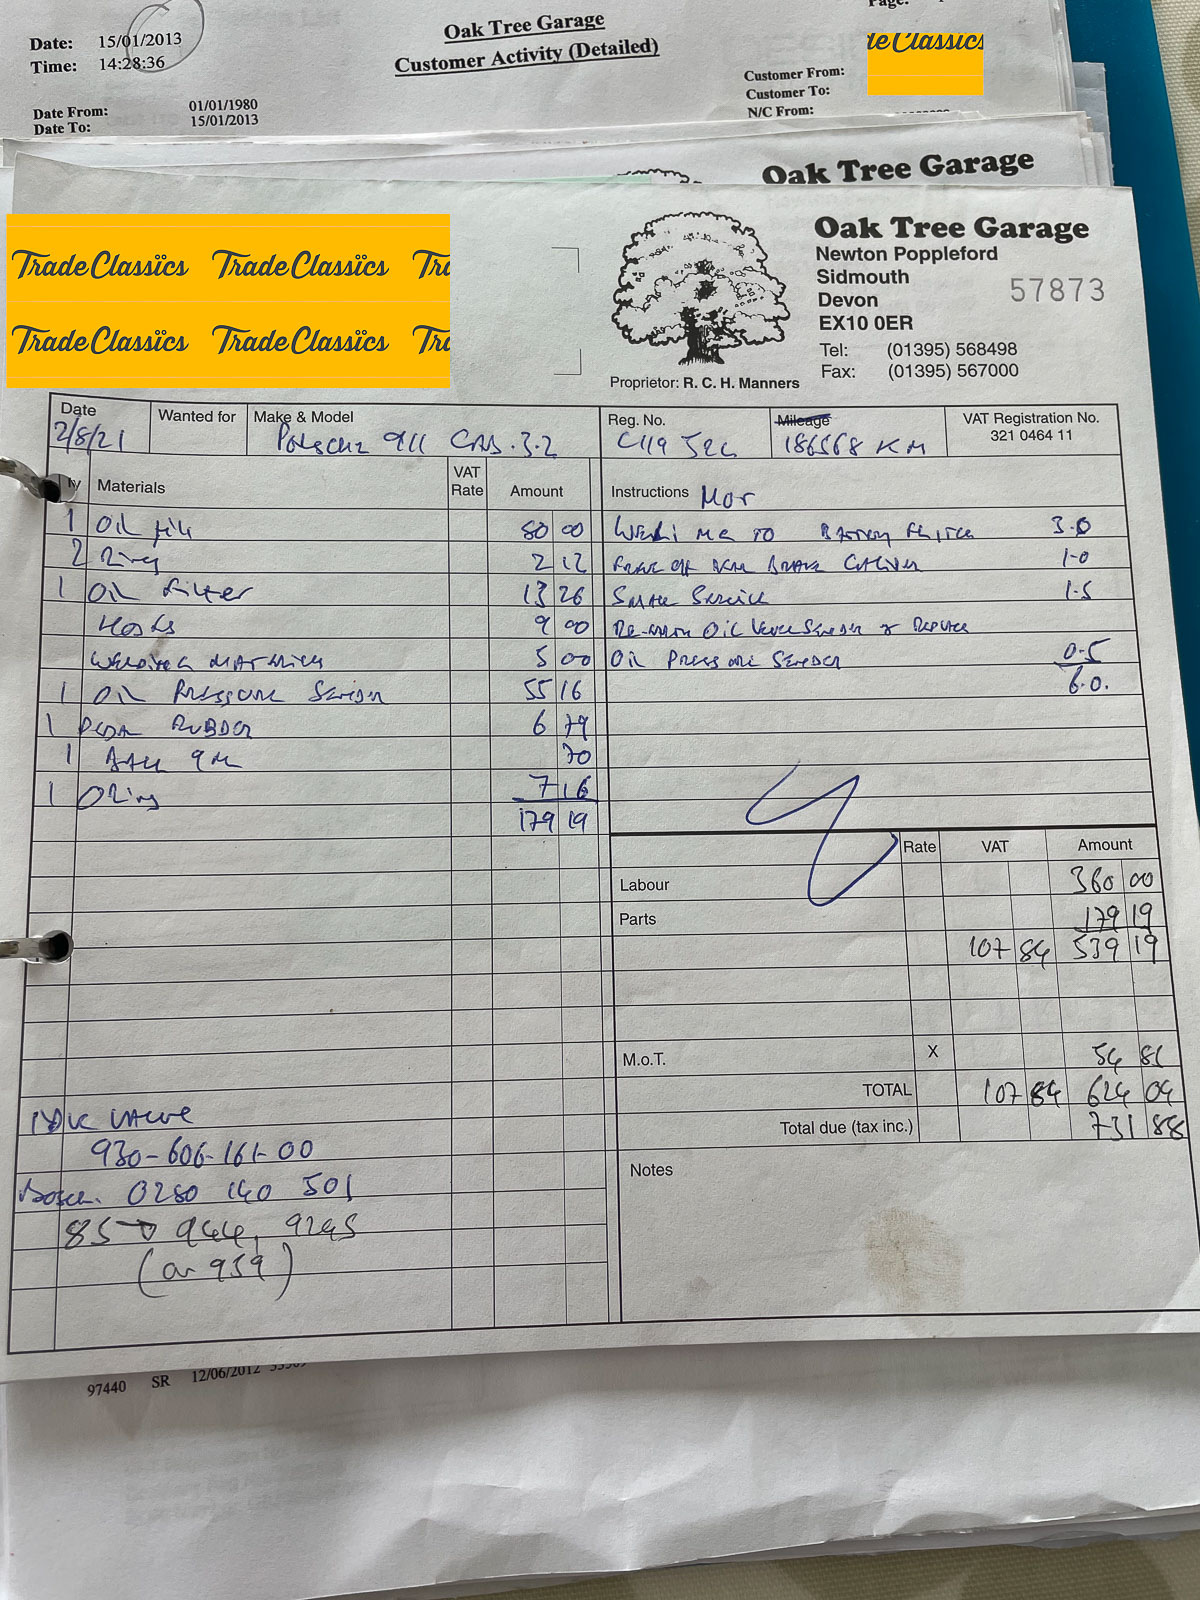 Date: 15/01/2013
Time: 14:28:36
Oak Tree Garage
Customer Activity (Detailed)
Page:
de Classics
Customer From:
Customer To:
N/C From:
Date From: 01/01/1980
Date To: 15/01/2013
Oak Tree Garage
Trade Classics Trade Classics Tra
Trade Classics Trade Classics Tra
Oak Tree Garage
Newton Poppleford
Sidmouth
Devon
EX10 0ER
57873
Tel: (01395) 568498
Fax: (01395) 567000
Proprietor: R. C. H. Manners
Date Wanted for Make & Model Reg. No. Mileage VAT Registration No.
321 0464 11
2/8/21 Porsche 911 CAB. 3.2 C119 186568 KM
ty Materials VAT Rate Amount Instructions MOT
1 Oil 80 00
2 Rings 2 12
1 Oil Filter 13 26
9 00
Welding Materials 5 00
1 Oil Pressure Sender 55 16
1 Rubber 6 79
1 70
1 O Ring 7 16
179 19
Welding to Battery 3.0
Free off Rear Brake Caliper 1.0
Small Service 1.5
Oil Level Sender & Replace
Oil Pressure Sender 0.5
6.0.
Rate VAT Amount
Labour 360 00
Parts 179 19
107 84 539 19
M.o.T. X 54 85
TOTAL 107 84 624 04
Total due (tax inc.) 731 88
Notes
Valve
930-606-161-00
Bosch. 0280 140 501
85 → 944, 924S
(or 959)
97440 SR 12/06/2012